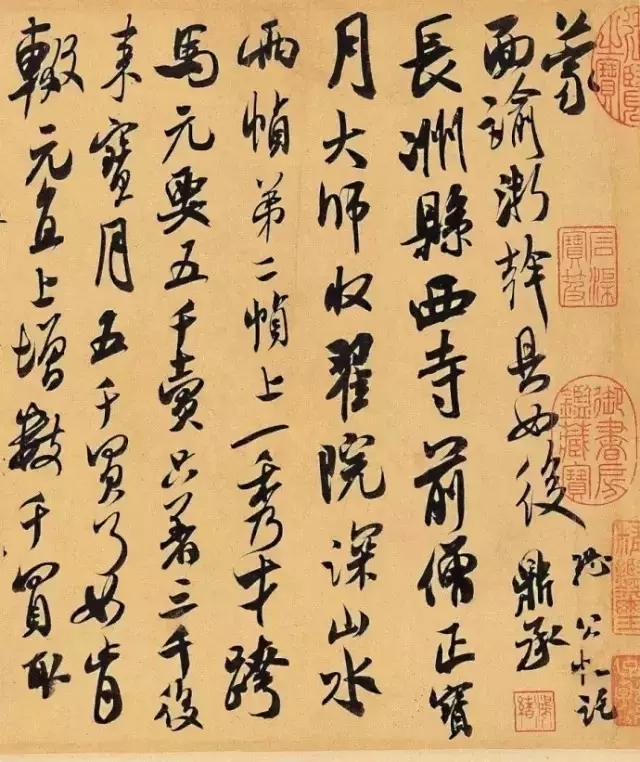 蒙
面諭浙幹具如後
長洲縣西寺前僧正寶
月大師收翟院深山水
兩幀第二幀上一秀才跨
馬元要五千賣只著三千後
來寶月五千買了如肯
輟元直上增數千買取
御書房鑑藏寶